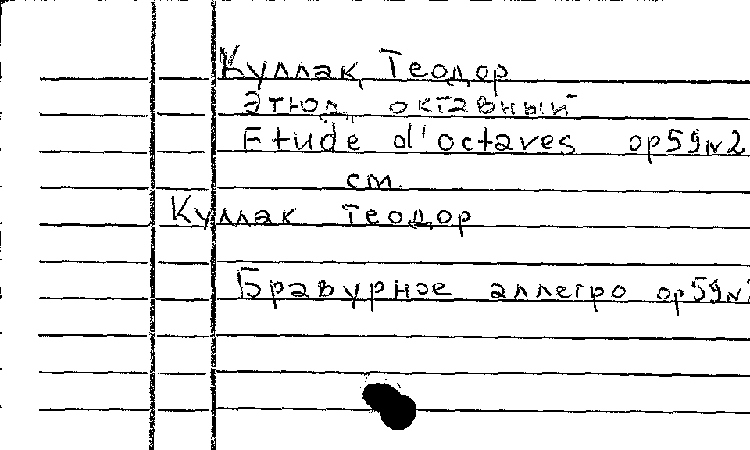 Куллак, Теодор
Этюд октавный
Etude d'octaves op59 N2
см.
Куллак Теодор
Бравурное аллегро op59 N2